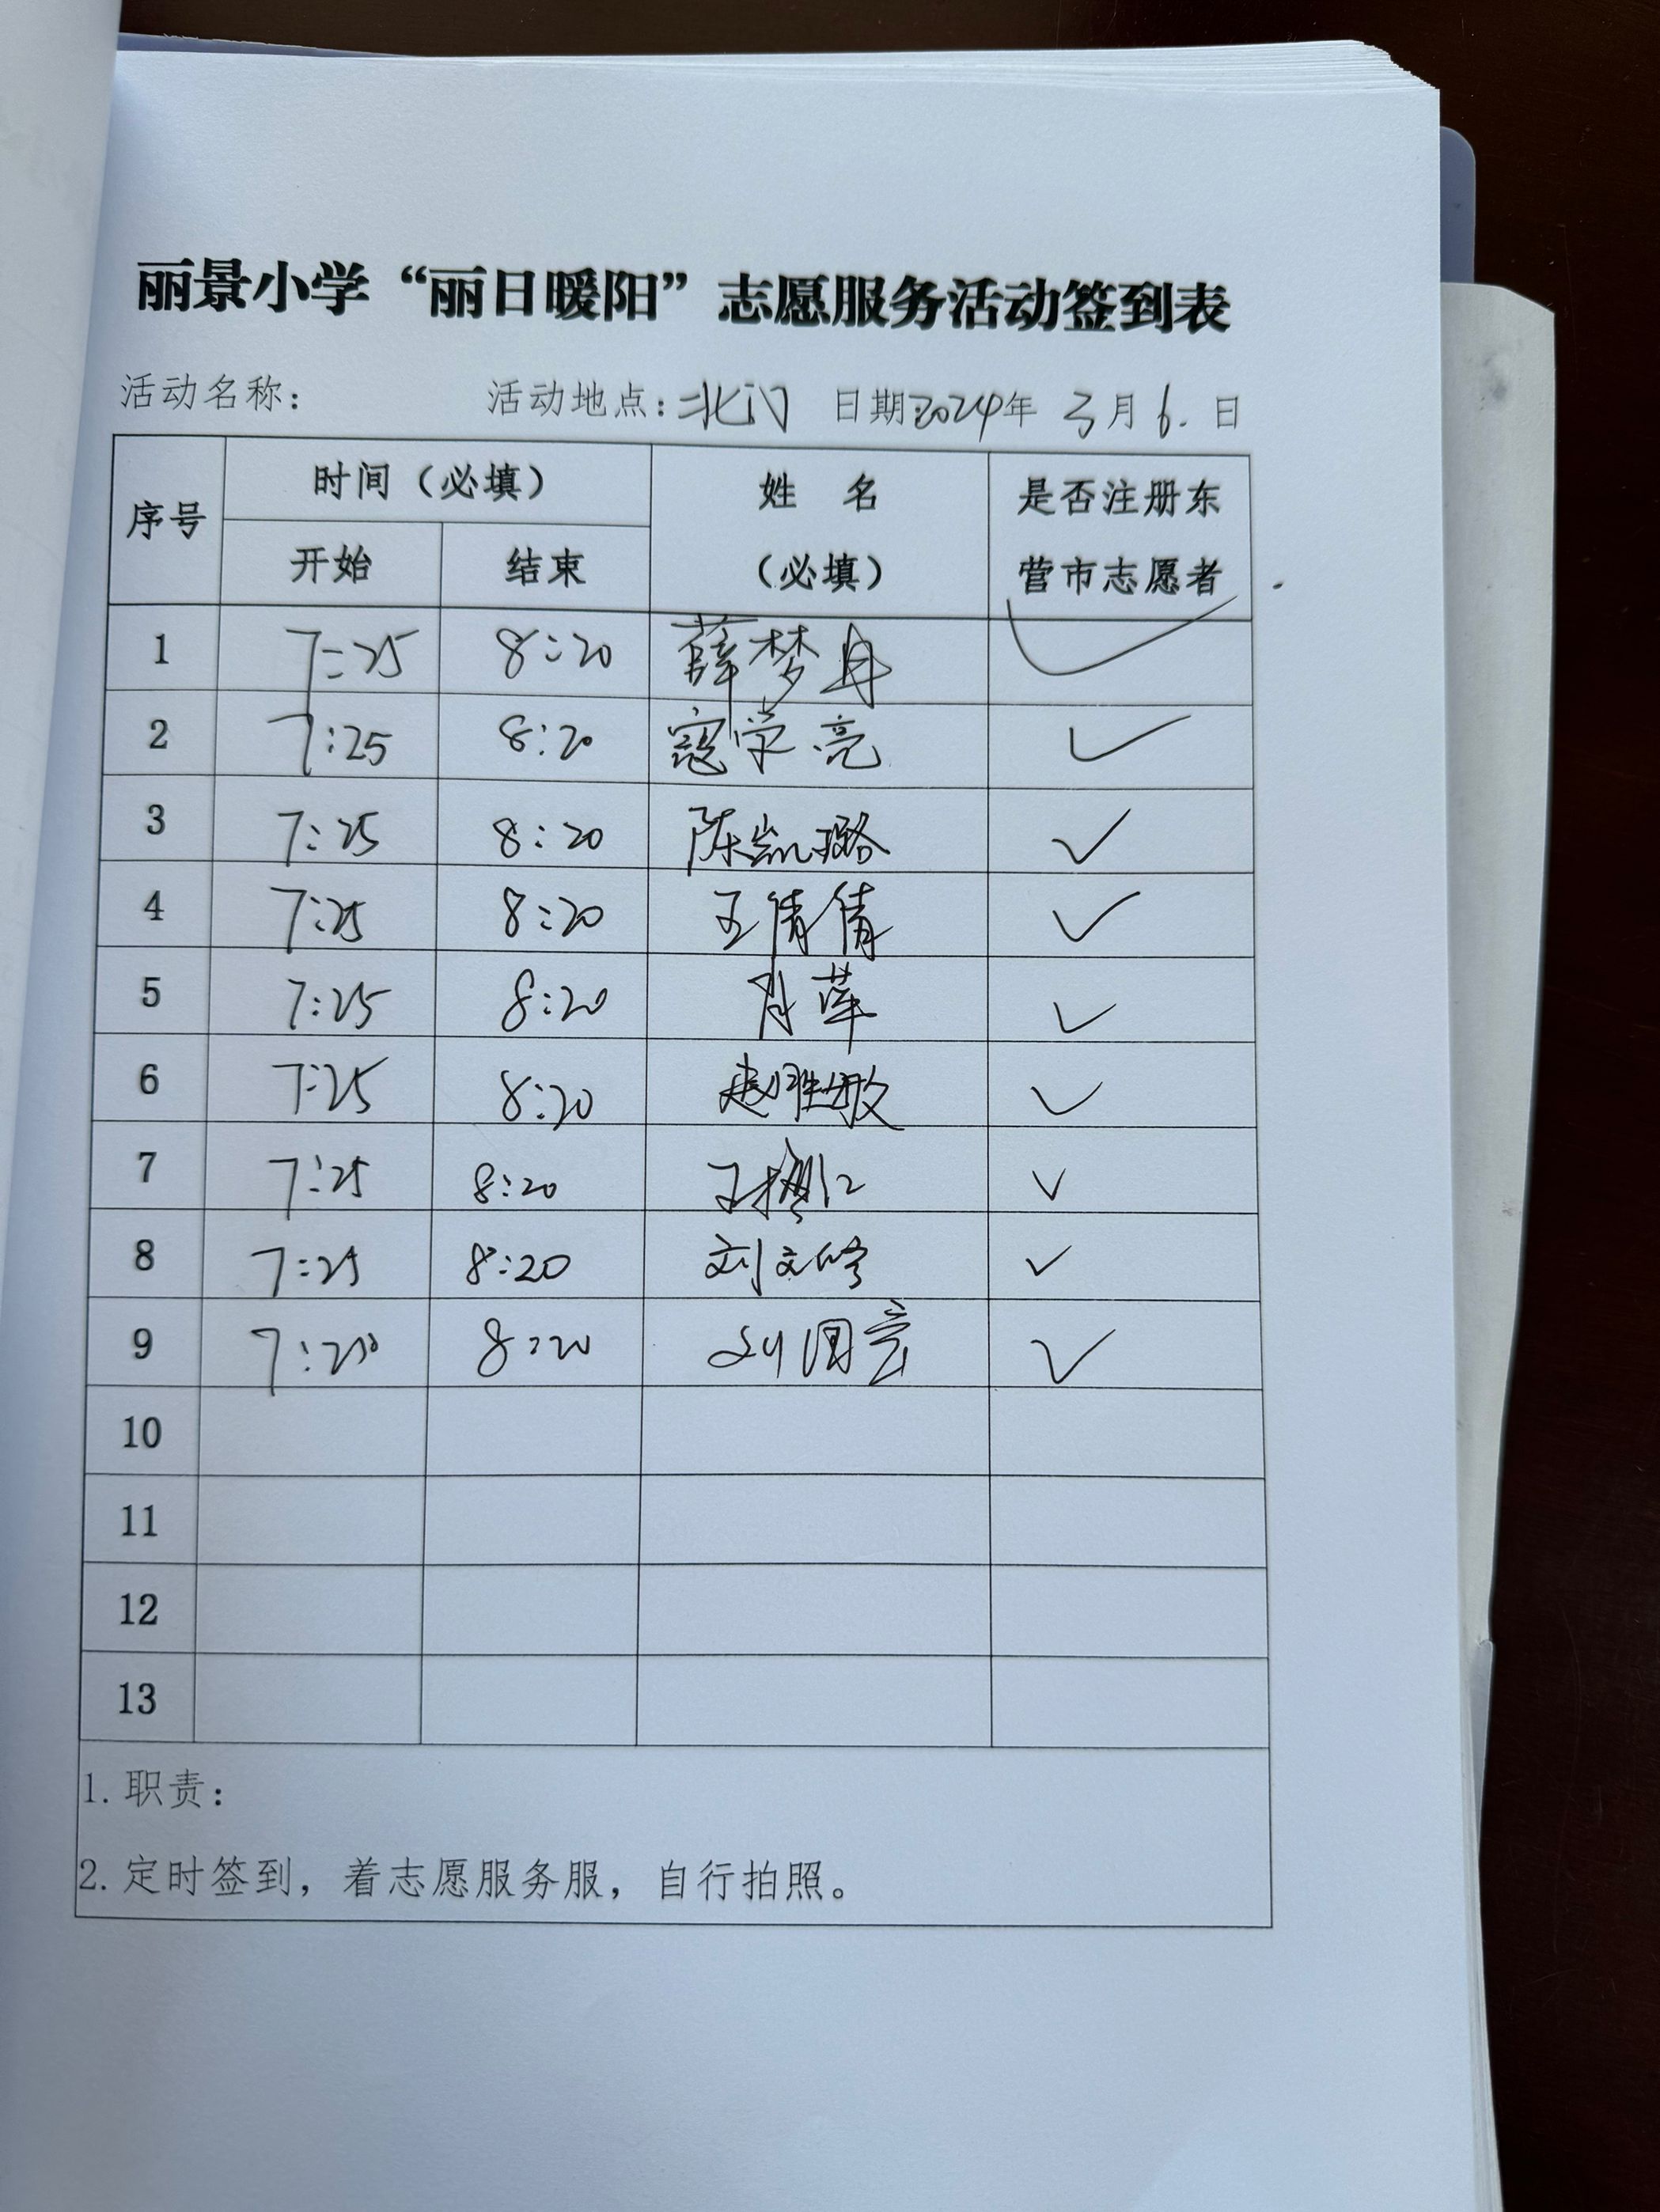 丽景小学“丽日暖阳”志愿服务活动签到表
活动名称： 活动地点：北门 日期2024年 3月6.日
序号 时间（必填） 姓 名 是否注册东
开始 结束 （必填） 营市志愿者
1 7:25 8:20 薛梦 ✓
2 7:25 8:20 寇学亮 ✓
3 7:25 8:20 陈凯璐 ✓
4 7:25 8:20 王倩倩 ✓
5 7:25 8:20 肖萍 ✓
6 7:25 8:20 赵胜敏 ✓
7 7:25 8:20 王 ✓
8 7:25 8:20 刘文修 ✓
9 7:20 8:20 刘国 ✓
10
11
12
13
1.职责：
2.定时签到，着志愿服务服，自行拍照。